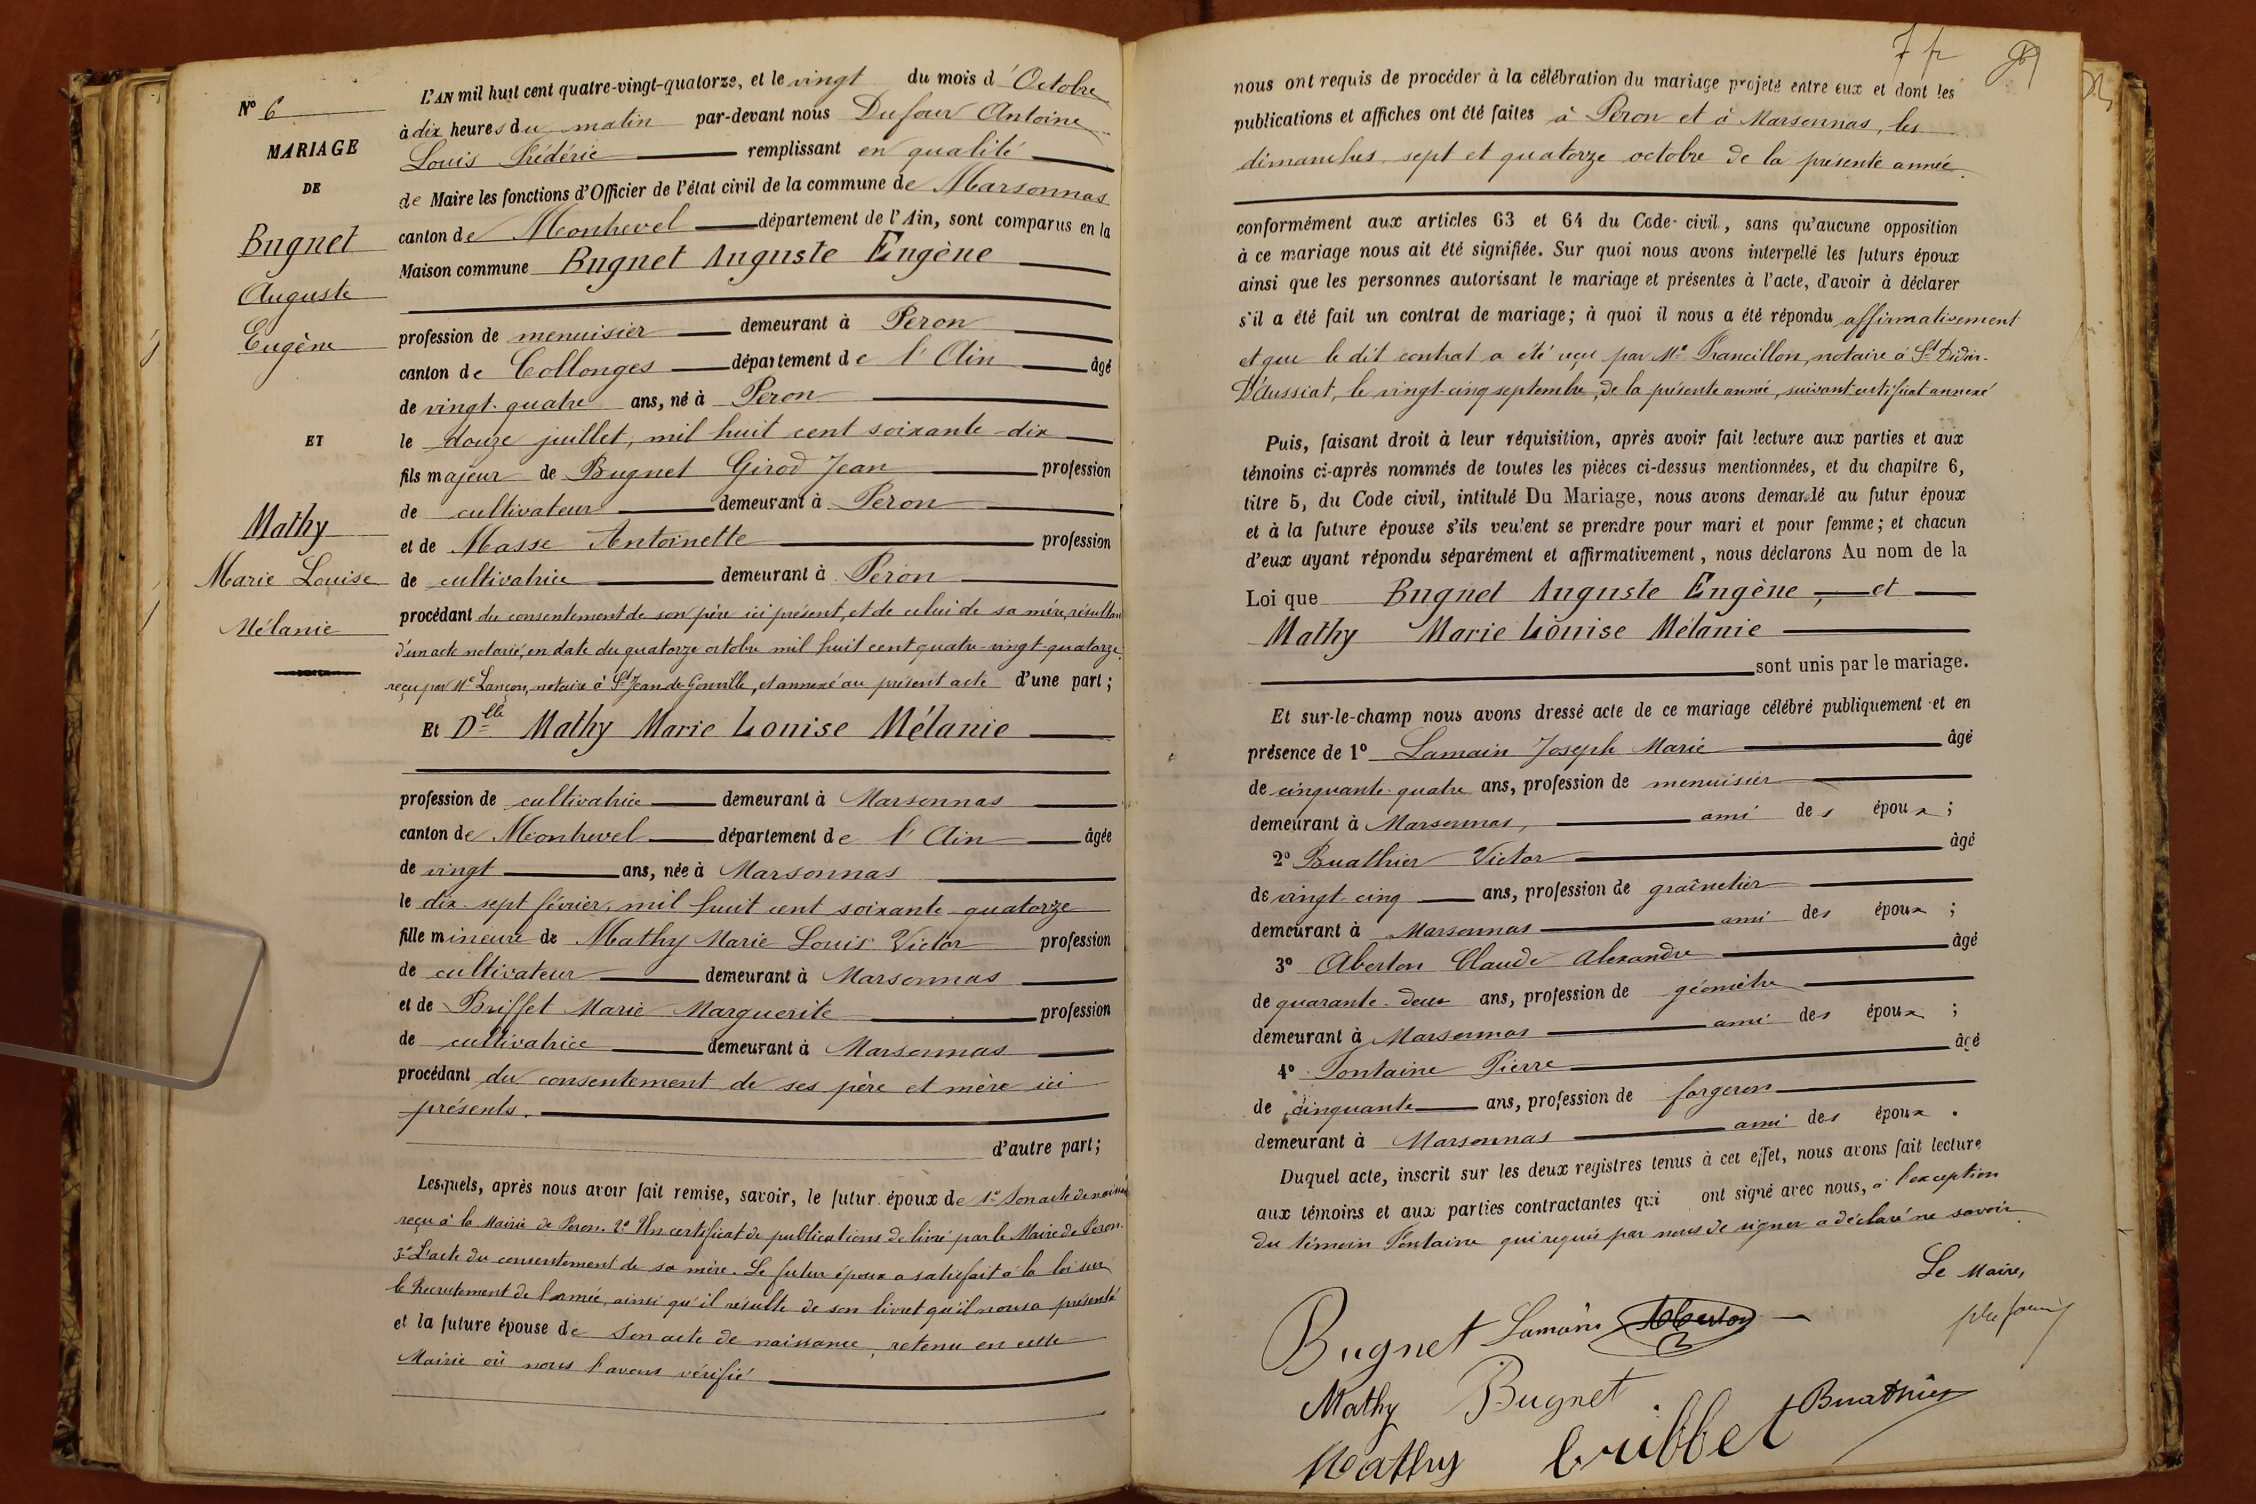 N° 6
MARIAGE
DE
Bugnet
Auguste
Eugène
ET
Mathy
Marie Louise
Mélanie
L'AN mil huit cent quatre-vingt-quatorze, et le vingt du mois d'Octobre
à dix heures du matin par-devant nous Dufour Antoine
Louis Frédéric remplissant en qualité
de Maire les fonctions d'Officier de l'état civil de la commune de Marsonnas
canton de Montrevel département de l'Ain, sont comparus en la
Maison commune Bugnet Auguste Eugène
profession de menuisier demeurant à Péron
canton de Collonges département de l'Ain âgé
de vingt-quatre ans, né à Péron
le douze juillet, mil huit cent soixante-dix
fils majeur de Bugnet Girod Jean profession
de cultivateur demeurant à Péron
et de Masse Antoinette profession
de cultivatrice demeurant à Péron
procédant du consentement de son père ici présent, et de celui de sa mère, résultant
d'un acte notarié, en date du quatorze octobre mil huit cent quatre-vingt-quatorze,
reçu par Me Lançon, notaire à St Jean-de-Gonville, et annexé au présent acte d'une part;
Et Dlle Mathy Marie Louise Mélanie
profession de cultivatrice demeurant à Marsonnas
canton de Montrevel département de l'Ain âgée
de vingt ans, née à Marsonnas
le dix-sept février, mil huit cent soixante-quatorze
fille mineure de Mathy Marie Louis Victor profession
de cultivateur demeurant à Marsonnas
et de Briffet Marie Marguerite profession
de cultivatrice demeurant à Marsonnas
procédant du consentement de ses père et mère ici
présents.
d'autre part;
Lesquels, après nous avoir fait remise, savoir, le futur époux de 1° Son acte de naissance
reçu à la Mairie de Péron. 2° Un certificat de publications délivré par le Maire de Péron.
3° L'acte du consentement de sa mère. Le futur époux a satisfait à la loi sur
le Recrutement de l'armée, ainsi qu'il résulte de son livret qu'il nous a présenté
et la future épouse de Son acte de naissance, retenu en cette
Mairie où nous l'avons vérifié
7 fr
nous ont requis de procéder à la célébration du mariage projeté entre eux et dont les
publications et affiches ont été faites à Péron et à Marsonnas, les
dimanches sept et quatorze octobre de la présente année.
conformément aux articles 63 et 64 du Code civil, sans qu'aucune opposition
à ce mariage nous ait été signifiée. Sur quoi nous avons interpellé les futurs époux
ainsi que les personnes autorisant le mariage et présentes à l'acte, d'avoir à déclarer
s'il a été fait un contrat de mariage; à quoi il nous a été répondu affirmativement
et que le dit contrat a été reçu par Me Francillon, notaire à St Didier-
D'Aussiat, le vingt-cinq septembre, de la présente année, suivant certificat annexé
Puis, faisant droit à leur réquisition, après avoir fait lecture aux parties et aux
témoins ci-après nommés de toutes les pièces ci-dessus mentionnées, et du chapitre 6,
titre 5, du Code civil, intitulé Du Mariage, nous avons demandé au futur époux
et à la future épouse s'ils veulent se prendre pour mari et pour femme; et chacun
d'eux ayant répondu séparément et affirmativement, nous déclarons Au nom de la
Loi que Bugnet Auguste Eugène, et
Mathy Marie Louise Mélanie
sont unis par le mariage.
Et sur-le-champ nous avons dressé acte de ce mariage célébré publiquement et en
présence de 1° Lamain Joseph Marie âgé
de cinquante-quatre ans, profession de menuisier
demeurant à Marsonnas, ami des époux;
2° Buathier Victor âgé
de vingt-cinq ans, profession de grainetier
demeurant à Marsonnas ami des époux;
3° Aberton Claude Alexandre âgé
de quarante-deux ans, profession de géomètre
demeurant à Marsonnas ami des époux;
4° Fontaine Pierre âgé
de cinquante ans, profession de forgeron
demeurant à Marsonnas ami des époux.
Duquel acte, inscrit sur les deux registres tenus à cet effet, nous avons fait lecture
aux témoins et aux parties contractantes qui ont signé avec nous, à l'exception
du témoin Fontaine qui requis par nous de signer a déclaré ne savoir
Le Maire,
Bugnet Lamain Aberton
Mathy Bugnet Buathier
Mathy